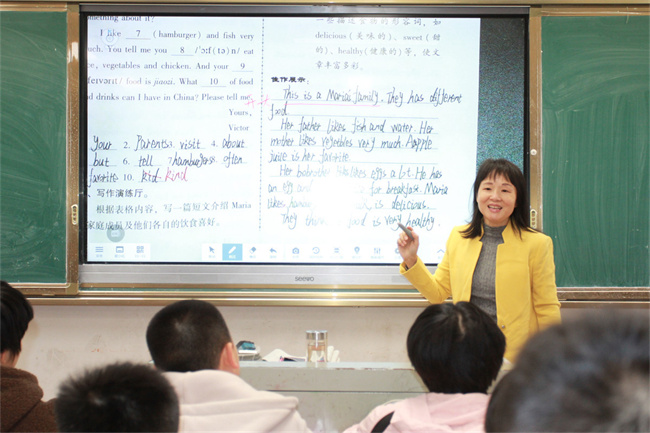 something about it?
I like 7 (hamburger) and fish very
much. You tell me you 8 /'ɔ:f(tə)n/ eat
vegetables and chicken. And your 9
/'feɪvərɪt/ food is jiaozi. What 10 of food
and drinks can I have in China? Please tell me.
Yours,
Victor
Your 2. Parents 3. visit 4. about
but 6. tell 7. hamburgers 8. often
favorite 10. kid kind
、写作演练厅。
根据表格内容，写一篇短文介绍 Maria
家庭成员及他们各自的饮食喜好。
delicious(美味的)、sweet(甜
的)、healthy(健康的)等，使文
章丰富多彩。
佳作展示:
This is a Maria family. They has different
food
Her father likes fish and water. Her
mother likes vegetables very much. Aapple
juice is her favorite
Her likes eggs a lot. He has
an egg and for breakfast. Maria
likes is delicious.
They food is very healthy.
seewo